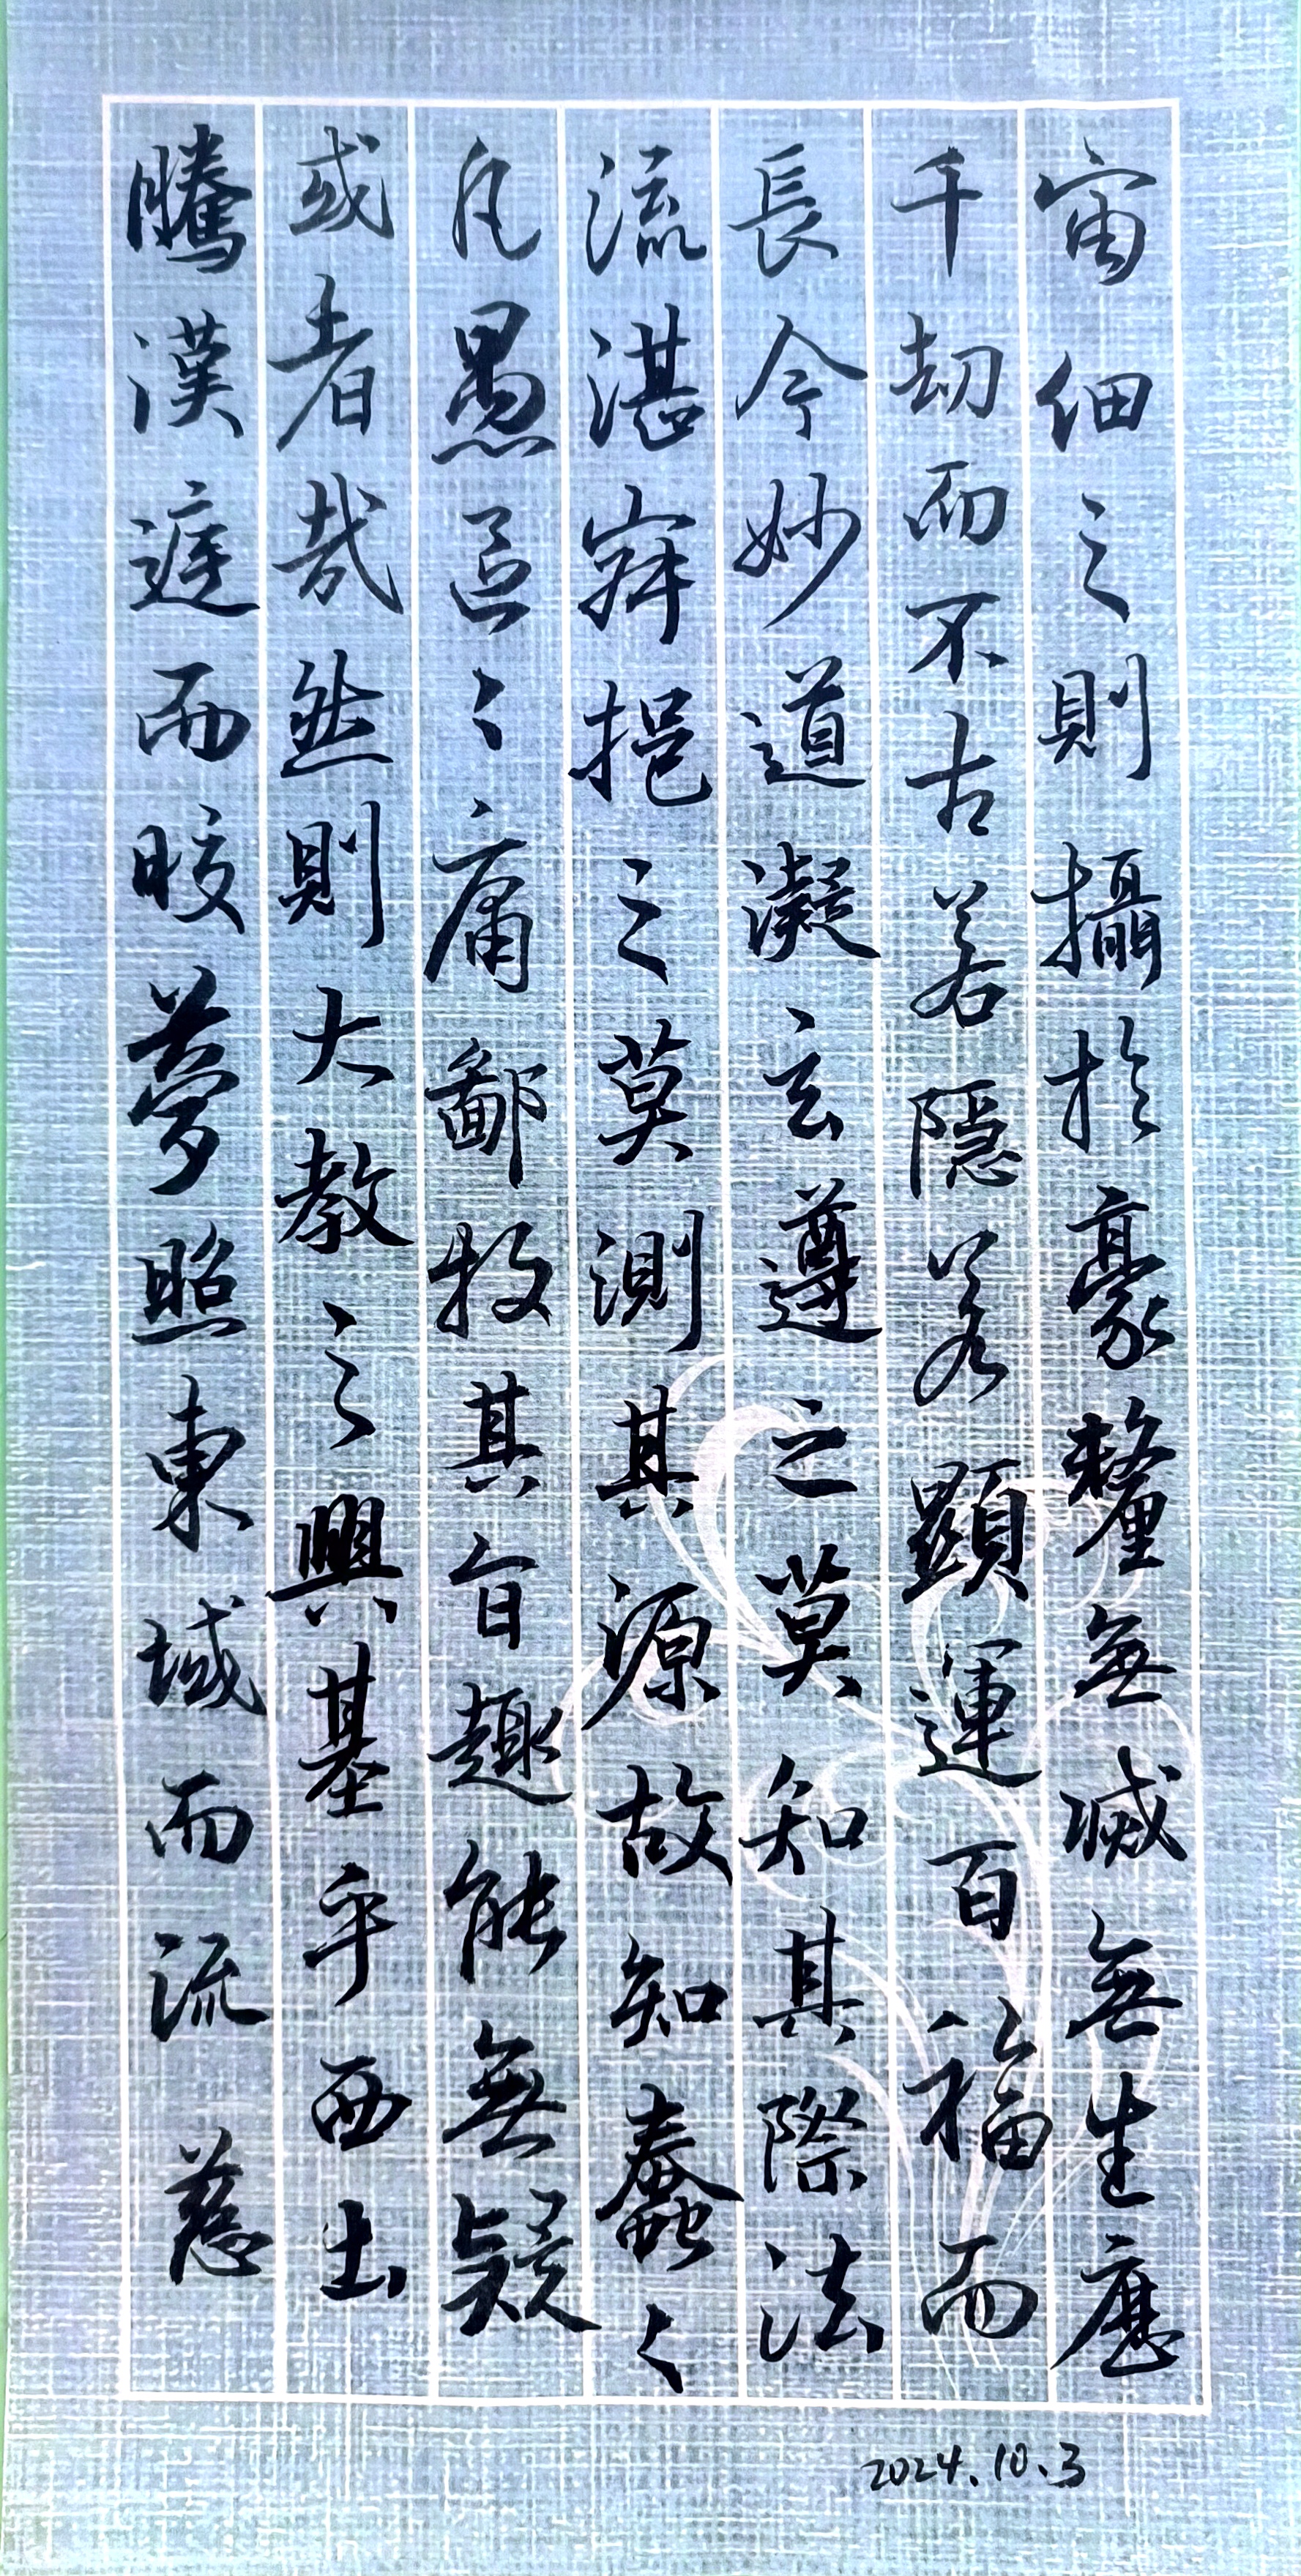 宙細之則攝於豪釐無滅無生歷
千劫而不古若隱若顯運百福而
長今妙道凝玄遵之莫知其際法
流湛寂挹之莫測其源故知蠢々
凡愚區々庸鄙投其旨趣能無疑
或者哉然則大教之興基乎西土
騰漢庭而晈夢照東域而流慈
2024.10.3